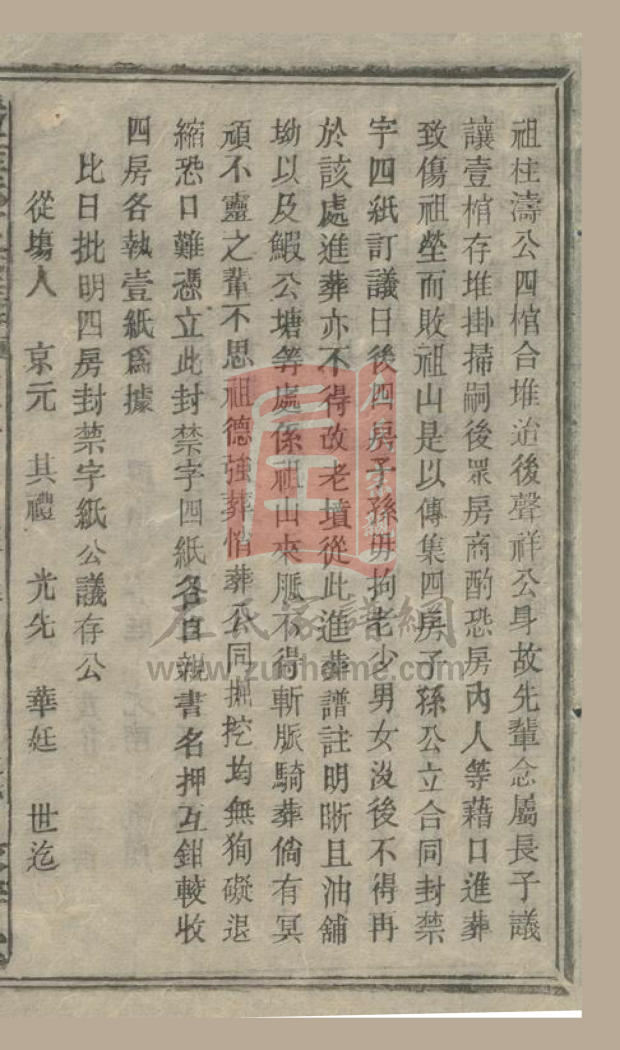 祖柱濤公四棺合堆迨後聲祥公身故先輩念屬長子議
讓壹棺存堆掛掃嗣後眾房商酌恐房內人等藉口進葬
致傷祖塋而敗祖山是以傳集四房子孫公立合同封禁
字四紙訂議日後四房子孫毋拘老少男女沒後不得再
於該處進葬亦不得改老墳從此進葬譜註明晰且油舖
坳以及鰕公塘等處係祖山來脈不得斬脈騎葬倘有冥
頑不靈之輩不思祖德強葬悄葬公同掘挖均無狥礙退
縮恐口難憑立此封禁字四紙各自親書名押互鉗較收
四房各執壹紙爲據
比日批明四房封禁字紙公議存公
從塲人 京元 其禮 光先 華廷 世迄
左氏家譜網
www.zuohome.com